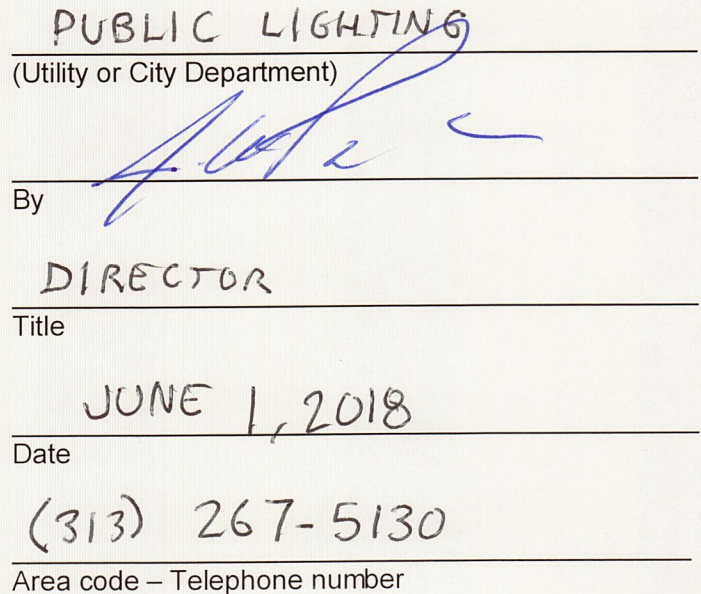 PUBLIC LIGHTING
(Utility or City Department)
By
DIRECTOR
Title
JUNE 1, 2018
Date
(313) 267-5130
Area code – Telephone number